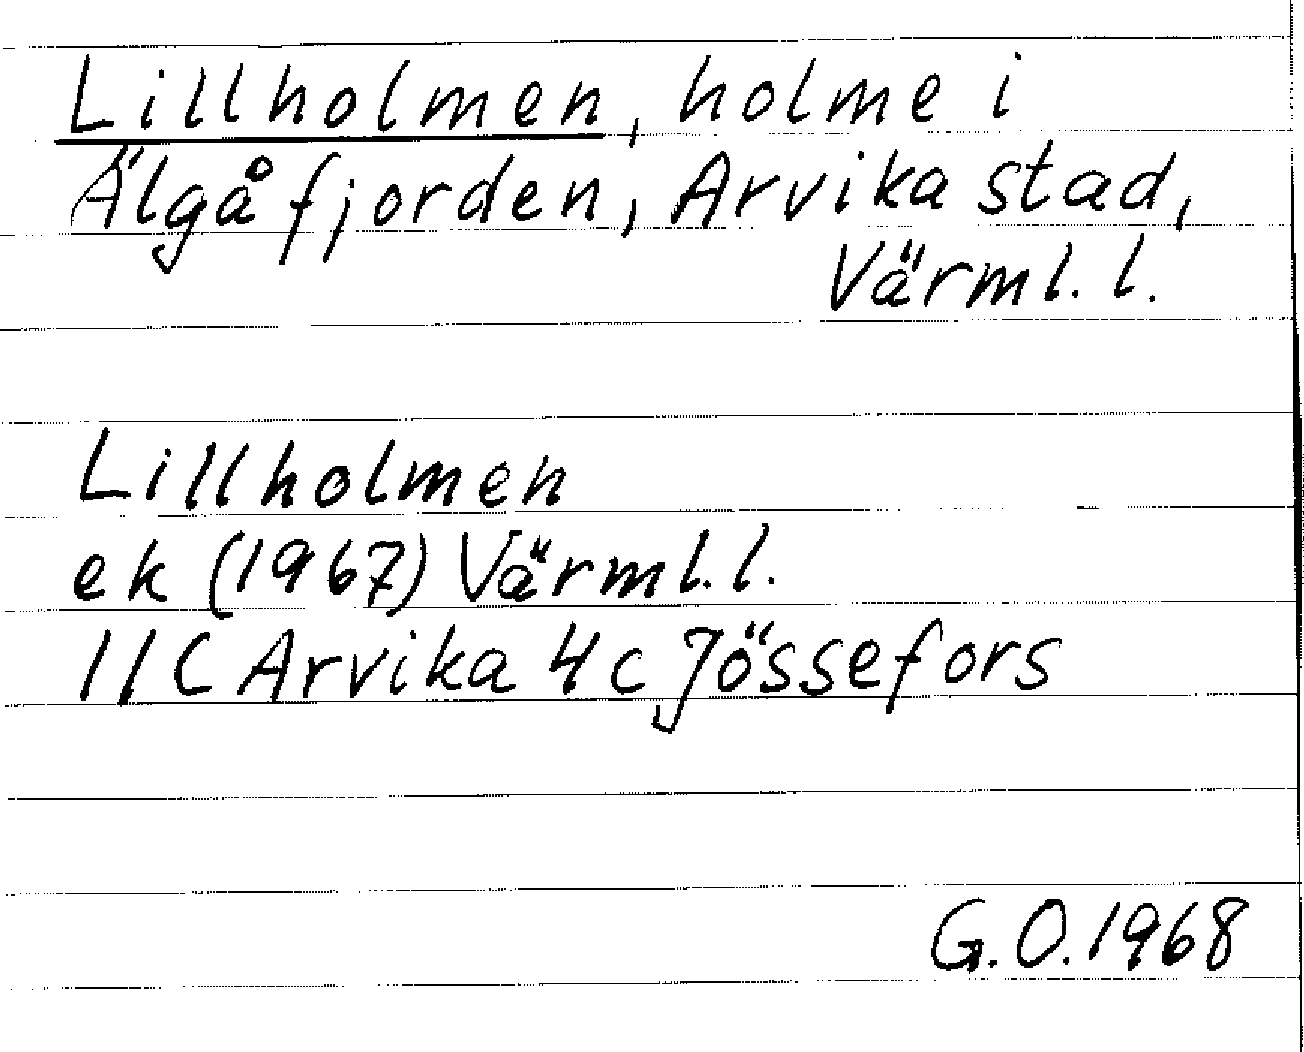 Lillholmen, holme i
Älgåfjorden, Arvika stad,
Värml. l.
Lillholmen
ek (1967) Värml. l.
11C Arvika 4c Jössefors
G. O. 1968